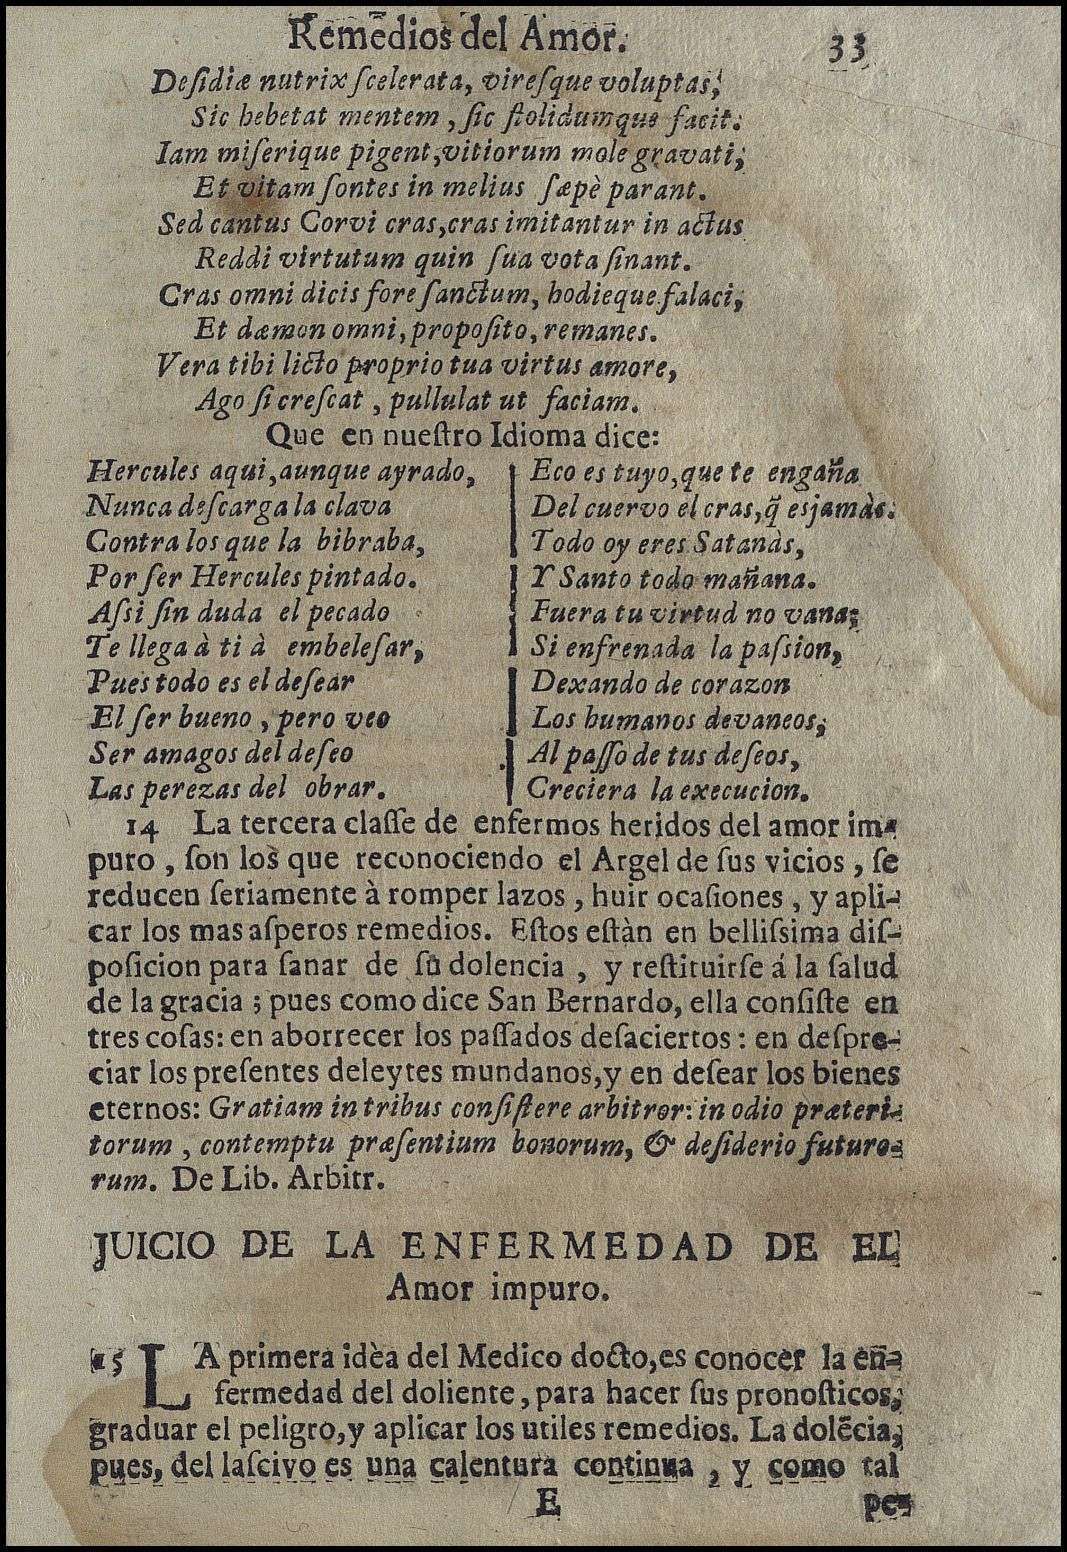 Remedios del Amor. 33
Desidiæ nutrix ſcelerata, vireſque voluptas,
Sic hebetat mentem, ſic ſtolidumque facit.
Iam miſerique pigent, vitiorum mole gravati,
Et vitam ſontes in melius ſæpè parant.
Sed cantus Corvi cras, cras imitantur in actus
Reddi virtutum quin ſua vota ſinant.
Cras omni dicis fore ſanctum, hodieque falaci,
Et dæmon omni, propoſito, remanes.
Vera tibi licto proprio tua virtus amore,
Ago ſi creſcat, pullulat ut faciam.
Que en nueſtro Idioma dice:
Hercules aqui, aunque ayrado,
Nunca deſcarga la clava
Contra los que la bibraba,
Por ſer Hercules pintado.
Aſsi ſin duda el pecado
Te llega à ti à embeleſar,
Pues todo es el deſear
El ſer bueno, pero veo
Ser amagos del deſeo
Las perezas del obrar.
Eco es tuyo, que te engaña
Del cuervo el cras, q̃ es jamàs.
Todo oy eres Satanàs,
Y Santo todo mañana.
Fuera tu virtud no vana;
Si enfrenada la paſsion,
Dexando de corazon
Los humanos devaneos,
Al paſſo de tus deſeos,
Creciera la execucion.
14 La tercera claſſe de enfermos heridos del amor im-
puro, ſon los que reconociendo el Argel de ſus vicios, ſe
reducen ſeriamente à romper lazos, huir ocaſiones, y apli-
car los mas aſperos remedios. Eſtos eſtàn en belliſsima diſ-
poſicion para ſanar de ſu dolencia, y reſtituirſe á la ſalud
de la gracia; pues como dice San Bernardo, ella conſiſte en
tres coſas: en aborrecer los paſſados deſaciertos: en deſpre-
ciar los preſentes deleytes mundanos, y en deſear los bienes
eternos: Gratiam in tribus conſiſtere arbitror: in odio præteri-
torum, contemptu præſentium bonorum, & deſiderio futuro-
rum. De Lib. Arbitr.
JUICIO DE LA ENFERMEDAD DE EL
Amor impuro.
15 LA primera idèa del Medico docto, es conocer la en-
fermedad del doliente, para hacer ſus pronoſticos,
graduar el peligro, y aplicar los utiles remedios. La dolẽcia,
pues, del laſcivo es una calentura continua, y como tal
E pe-